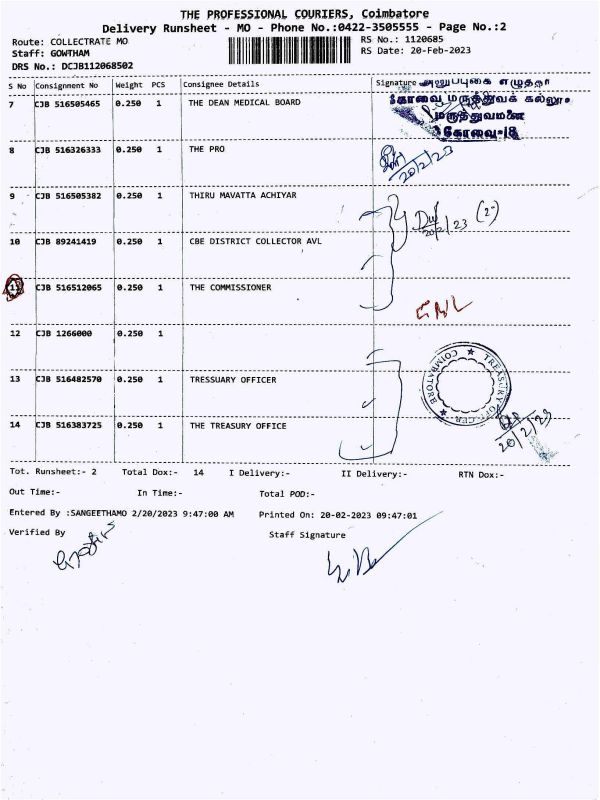 THE PROFESSIONAL COURIERS, Coimbatore
Delivery Runsheet - MO - Phone No.:0422-3505555 - Page No.:2
Route: COLLECTRATE MO
RS No.: 1120685
Staff: GOWTHAM
RS Date: 20-Feb-2023
DRS No.: DCJB112068502
S No Consignment No Weight PCS Consignee Details Signature
அனுப்புகை எழுத்தர்
7 CJB 516505465 0.250 1 THE DEAN MEDICAL BOARD
கோவை மருத்துவக் கல்லூ
மருத்துவமனை
கோவை-18
8 CJB 516326333 0.250 1 THE PRO
20/2/23
9 CJB 516505382 0.250 1 THIRU MAVATTA ACHIYAR
20/2/23 (2)
10 CJB 89241419 0.250 1 CBE DISTRICT COLLECTOR AVL
11 CJB 516512065 0.250 1 THE COMMISSIONER
12 CJB 1266000 0.250 1
13 CJB 516482570 0.250 1 TRESSUARY OFFICER
TREASURY OFFICER
COIMBATORE
14 CJB 516383725 0.250 1 THE TREASURY OFFICE
20/2/23
Tot. Runsheet:- 2 Total Dox:- 14 I Delivery:- II Delivery:- RTN Dox:-
Out Time:- In Time:- Total POD:-
Entered By :SANGEETHAMO 2/20/2023 9:47:00 AM Printed On: 20-02-2023 09:47:01
Verified By Staff Signature